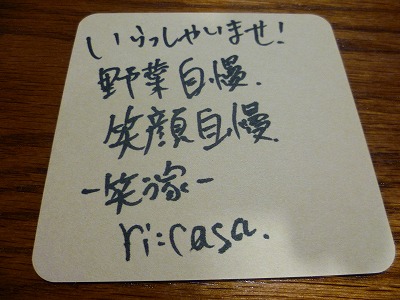 いらっしゃいませ!
野菜自慢.
笑顔自慢.
-笑嫁-
ri:casa.